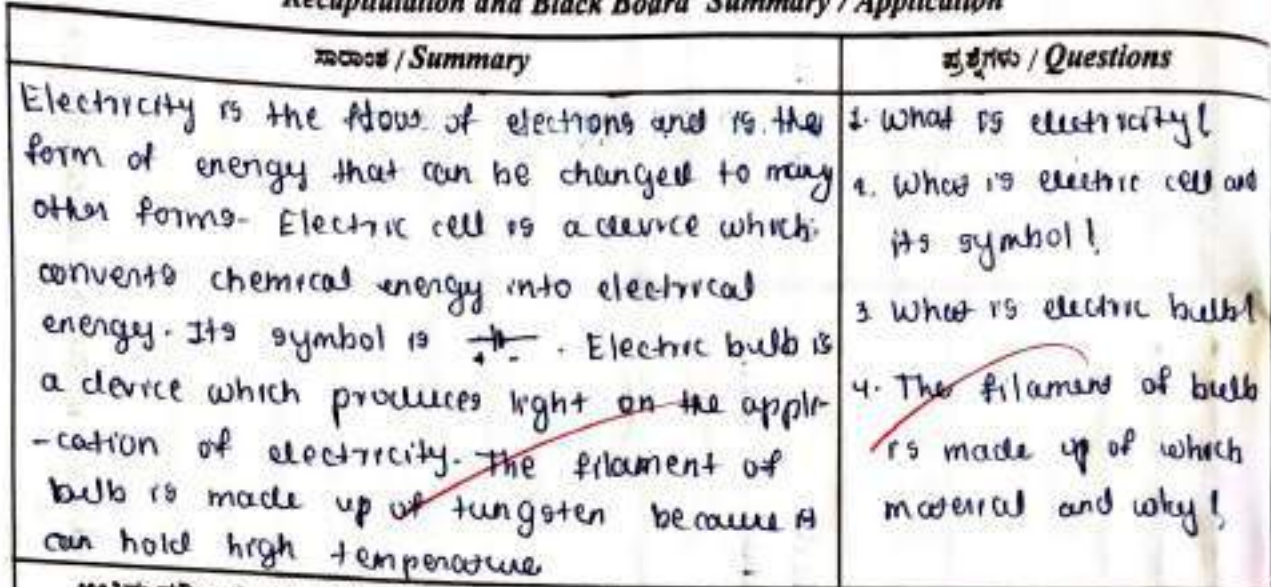 Recapitulation and Black Board Summary / Application
ಸಾರಾಂಶ / Summary
ಪ್ರಶ್ನೆಗಳು / Questions
Electricity is the flow of electrons and is the
form of energy that can be changed to many
other forms- Electric cell is a device which
converts chemical energy into electrical
energy. Its symbol is . Electric bulb is
a device which produces light on the appli-
-cation of electricity. The filament of
bulb is made up of tungsten because it
can hold high temperature
1. What is electricity?
2. What is electric cell and
its symbol?
3 What is electric bulb?
4. The filament of bulb
is made up of which
material and why?